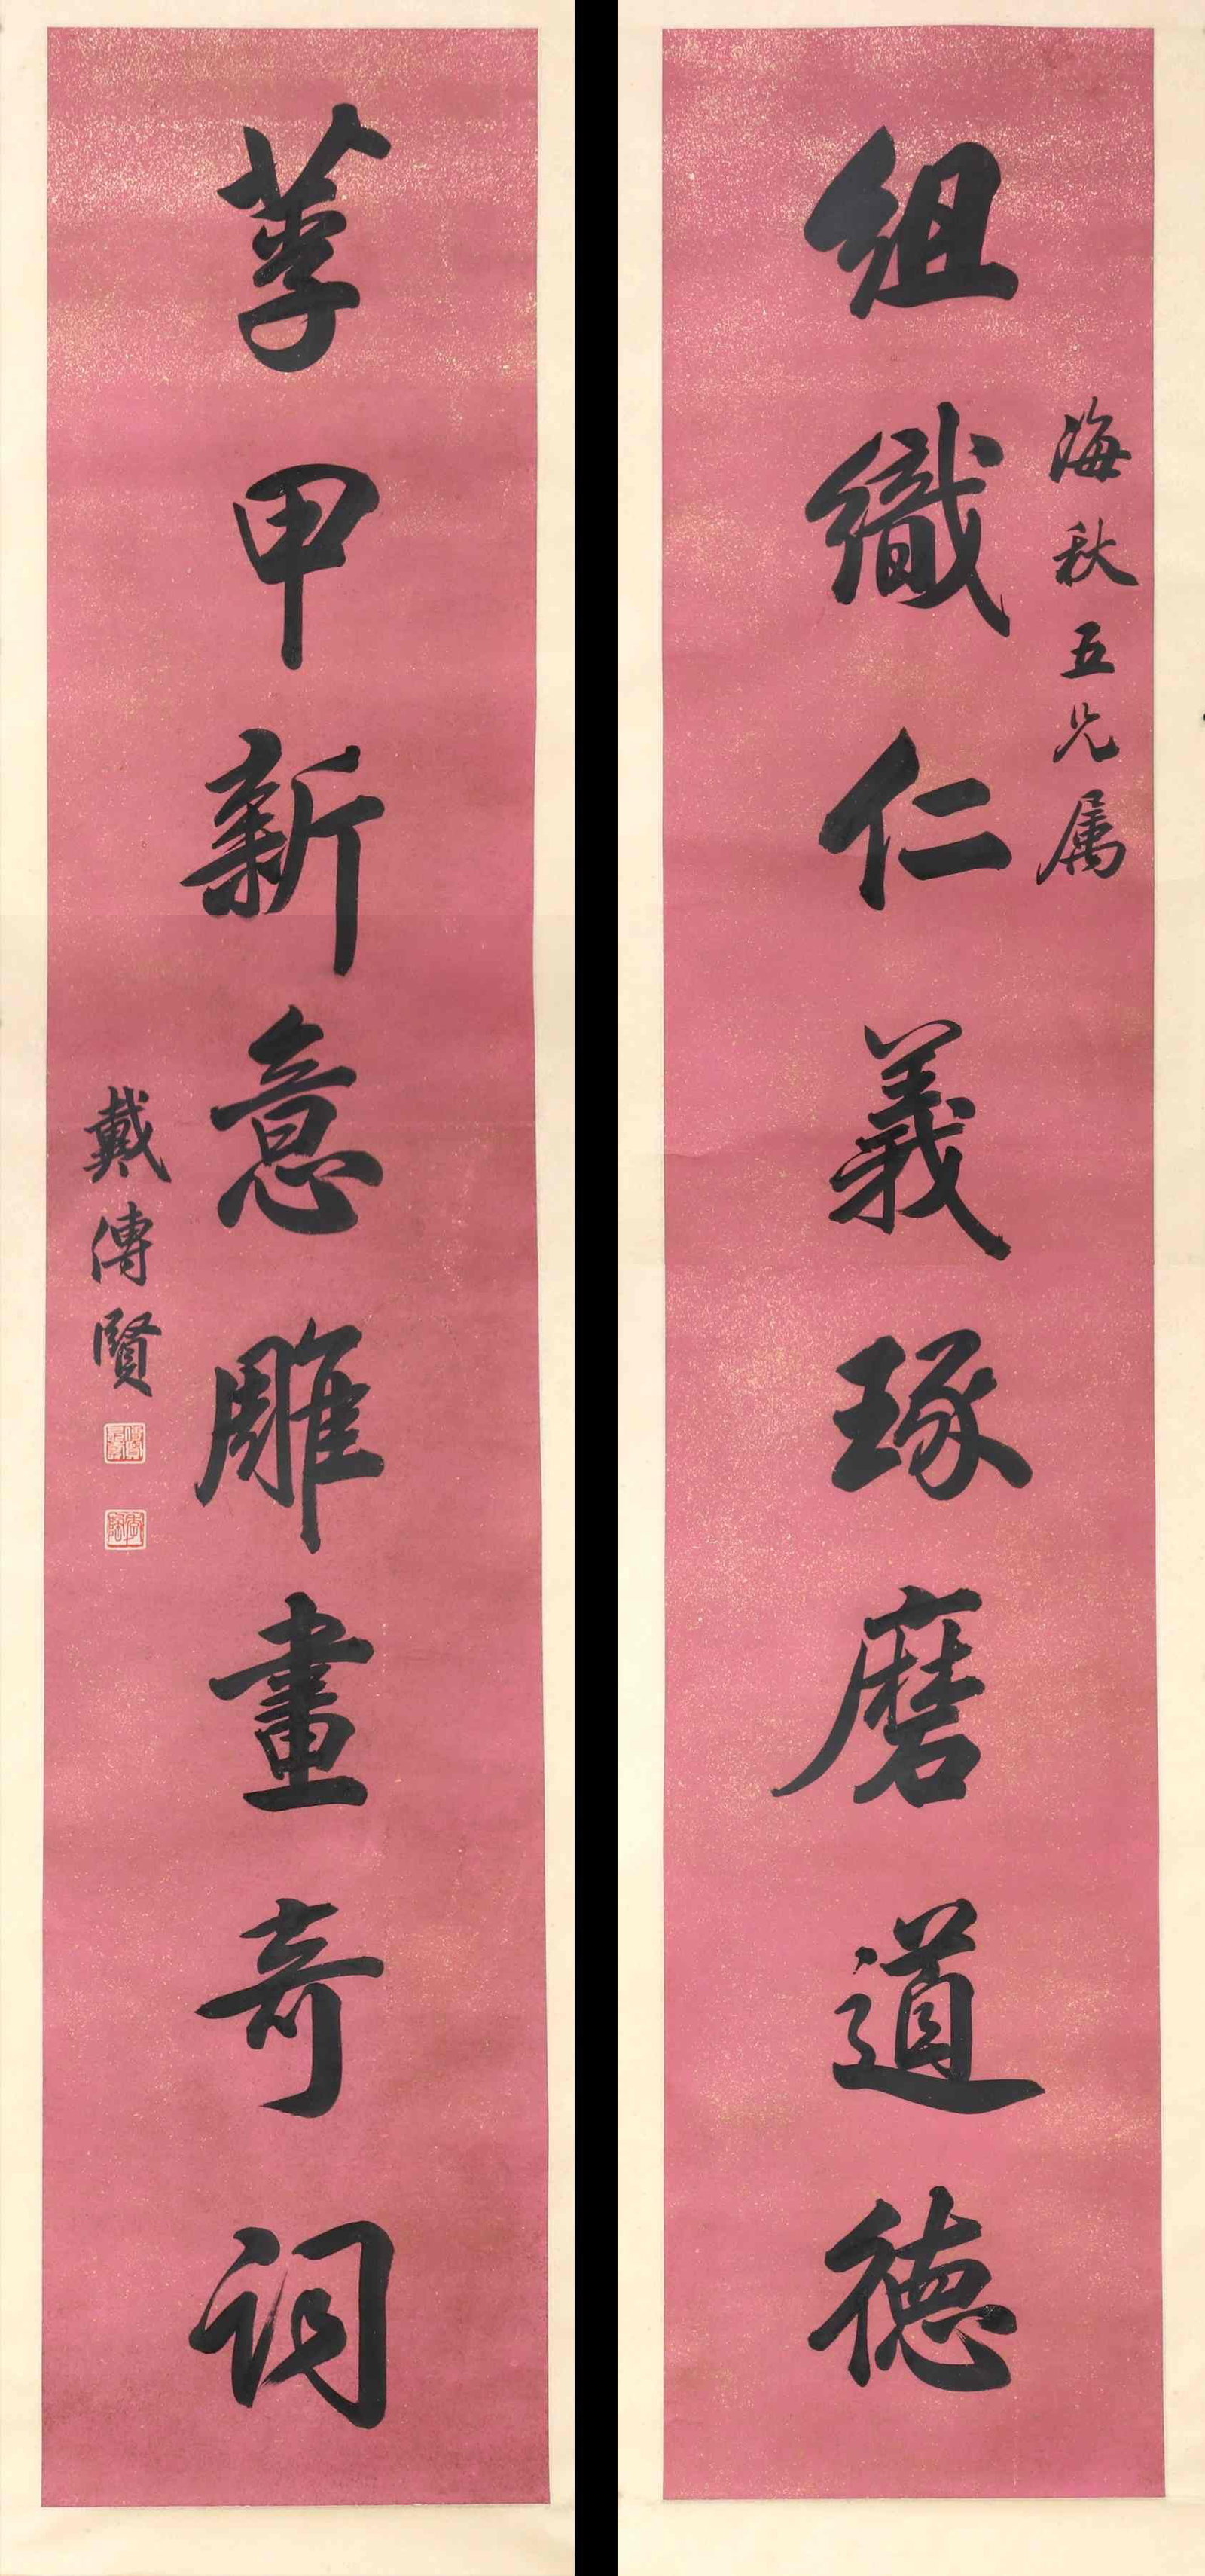 海秋五兄属
組織仁義琢磨道德
莩甲新意雕畫奇詞
戴傳賢